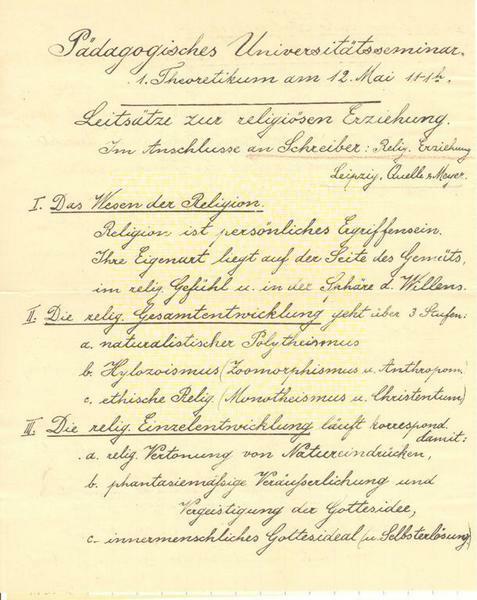 Pädagogisches Universitätsseminar.
1. Theoretikum am 12. Mai 11-1h.
Leitsätze zur religiösen Erziehung.
Im Anschlusse an Schreiber: Relig. Erziehung
Leipzig, Quelle & Meyer.
I. Das Wesen der Religion.
Religion ist persönliches Ergriffensein.
Ihre Eigenart liegt auf der Seite des Gemüts,
im relig. Gefühl u. in der Sphäre d. Willens.
II. Die relig. Gesamtentwicklung geht über 3 Stufen:
a. naturalistischer Polytheismus
b. Hylozoismus (Zoomorphismus u. Anthropom.)
c. ethische Relig. (Monotheismus u. Christentum)
III. Die relig. Einzelentwicklung läuft korrespond.
damit:
a. relig. Vertonung von Natureindrücken,
b. phantasiemässige Veräusserlichung und
Vergeistigung der Gottesidee,
c. innermenschliches Gottesideal (u. Selbsterlösung)